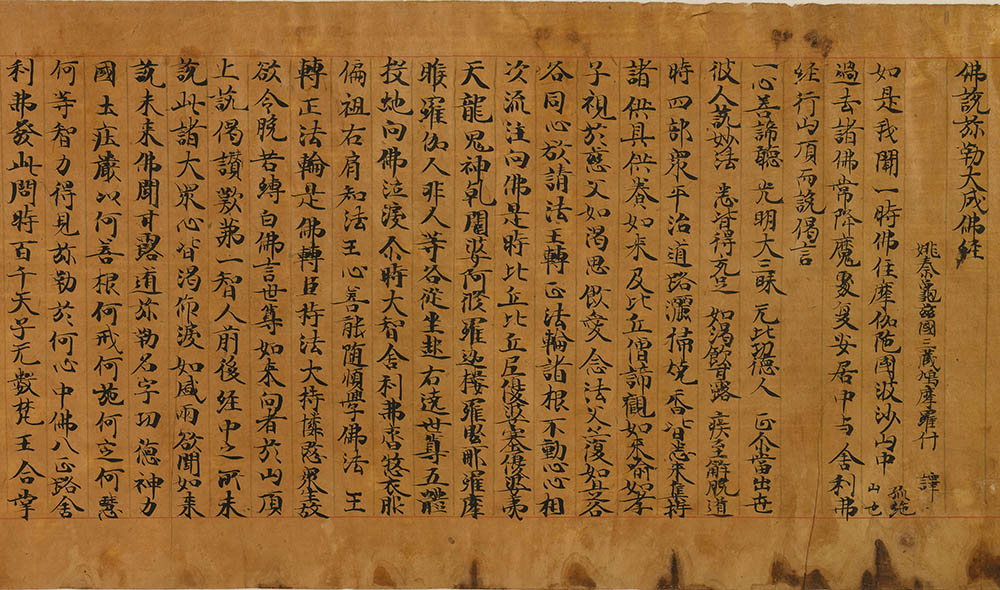 佛說弥勒大成佛經
姚秦龜茲國三藏鳩摩羅什 譯
如是我聞一時佛住摩伽陁國波沙山中 孤絕山也
過去諸佛常降魔處夏安居中与舍利弗
經行山頂而說偈言
一心善諦聽 光明大三昧 无比功德人 正尒當出世
彼人說妙法 悉皆得充足 如渴飲甘露 疾至解脫道
時四部眾平治道路灑掃燒香皆悉來集持
諸供具供養如來及比丘僧諦觀如來喻如孝
子視於慈父如渴思飲愛念法父亦復如是各
各同心欲請法王轉正法輪諸根不動心心相
次流注向佛是時比丘比丘尼優婆塞優婆夷
天龍鬼神乹闥婆阿脩羅迦樓羅緊那羅摩
睺羅伽人非人等各從坐起右遶世尊五體
投地向佛泣淚尒時大智舍利弗悉裝衣服
偏袒右肩知法王心善能随順學佛法王
轉正法輪是佛轉臣持法大將憐愍眾生故
欲令脫苦縛白佛言世尊如來向者於山頂
上說偈讚歎苐一智人前後經中之所未
說此諸大眾心皆渴仰淚如盛雨欲聞如來
說未來佛聞甘露道弥勒名字功德神力
國土莊嚴以何善根何戒何施何定何慧
何等智力得見弥勒於何心中佛八正路舍
利弗發此問時百千天子无數梵王合掌